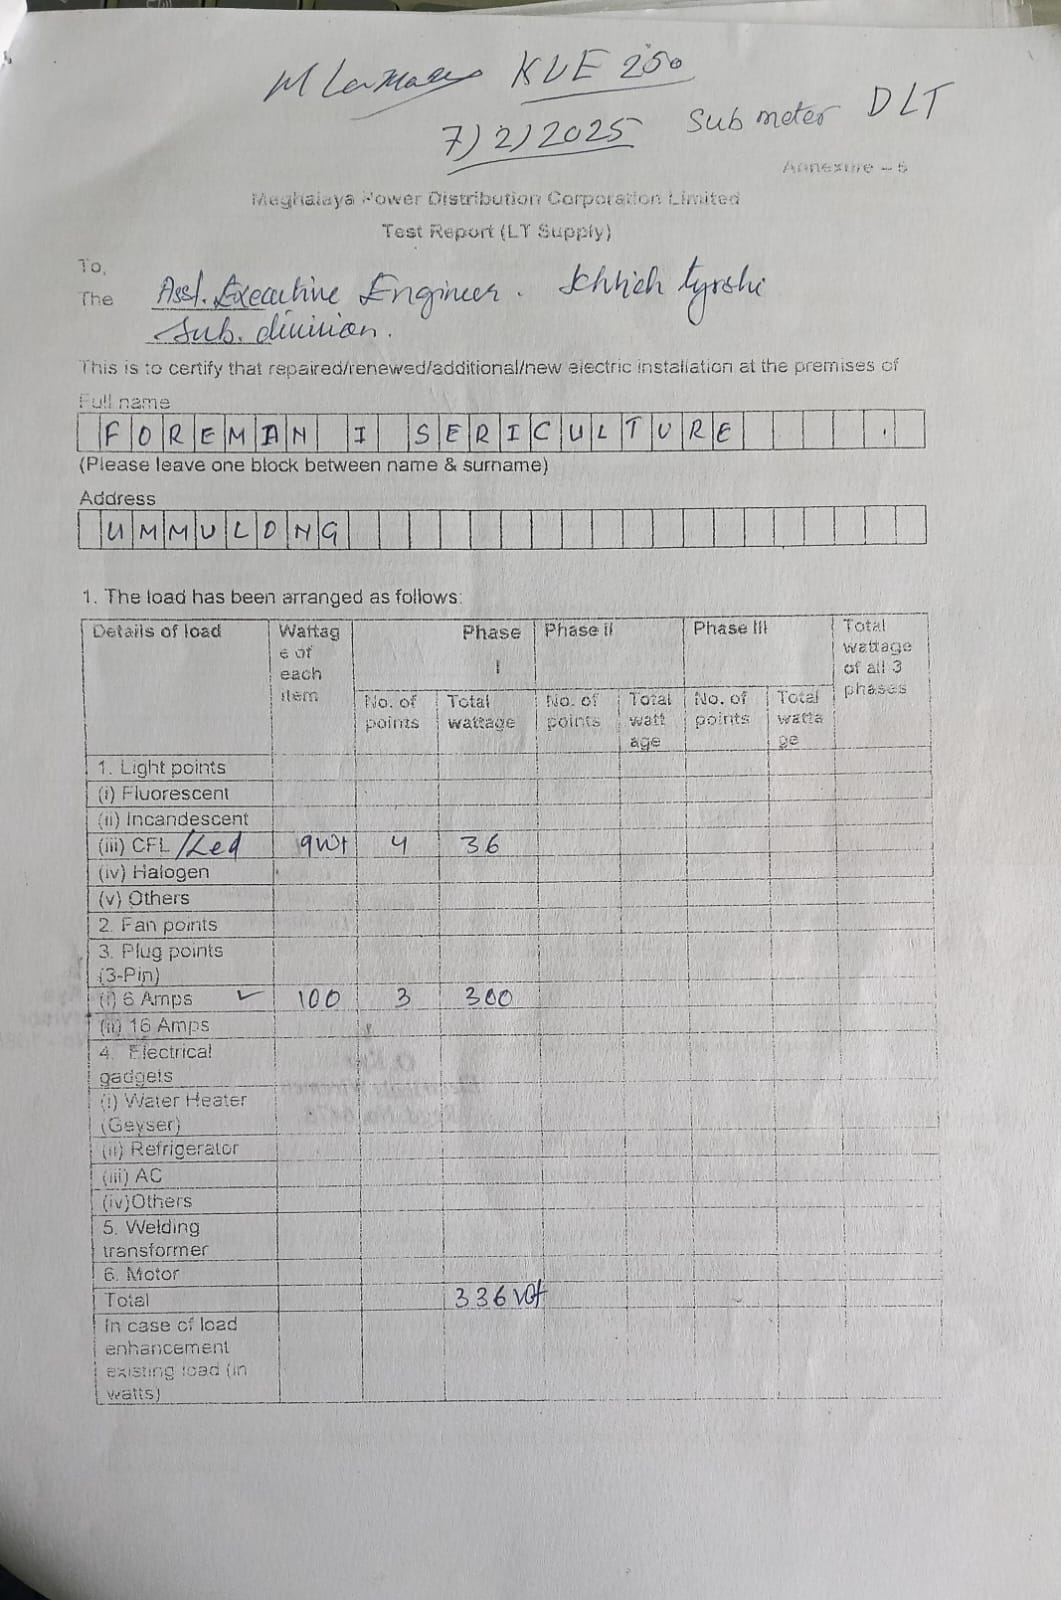 KLE 250
7/2/2025 Sub meter DLT
Annexure – 5
Meghalaya Power Distribution Corporation Limited
Test Report (LT Supply)
To,
The Asst. Executive Engineer. Khlieh tyrshi
Sub. division.
This is to certify that repaired/renewed/additional/new electric installation at the premises of
Full name
FOREMAN I SERICULTURE
(Please leave one block between name & surname)
Address
UMMULONG
1. The load has been arranged as follows:
Details of load Wattag e of each item Phase I Phase II Phase III Total wattage of all 3 phases
No. of points Total wattage No. of points Total watt age No. of points Total watta ge
1. Light points
(i) Fluorescent
(ii) Incandescent
(iii) CFL /Led 9wt 4 36
(iv) Halogen
(v) Others
2. Fan points
3. Plug points
(3-Pin)
(i) 6 Amps ✓ 100 3 300
(ii) 16 Amps
4. Electrical
gadgets
(i) Water Heater
(Geyser)
(ii) Refrigerator
(iii) AC
(iv)Others
5. Welding
transformer
6. Motor
Total 336 wt
In case of load
enhancement
existing load (in
watts)